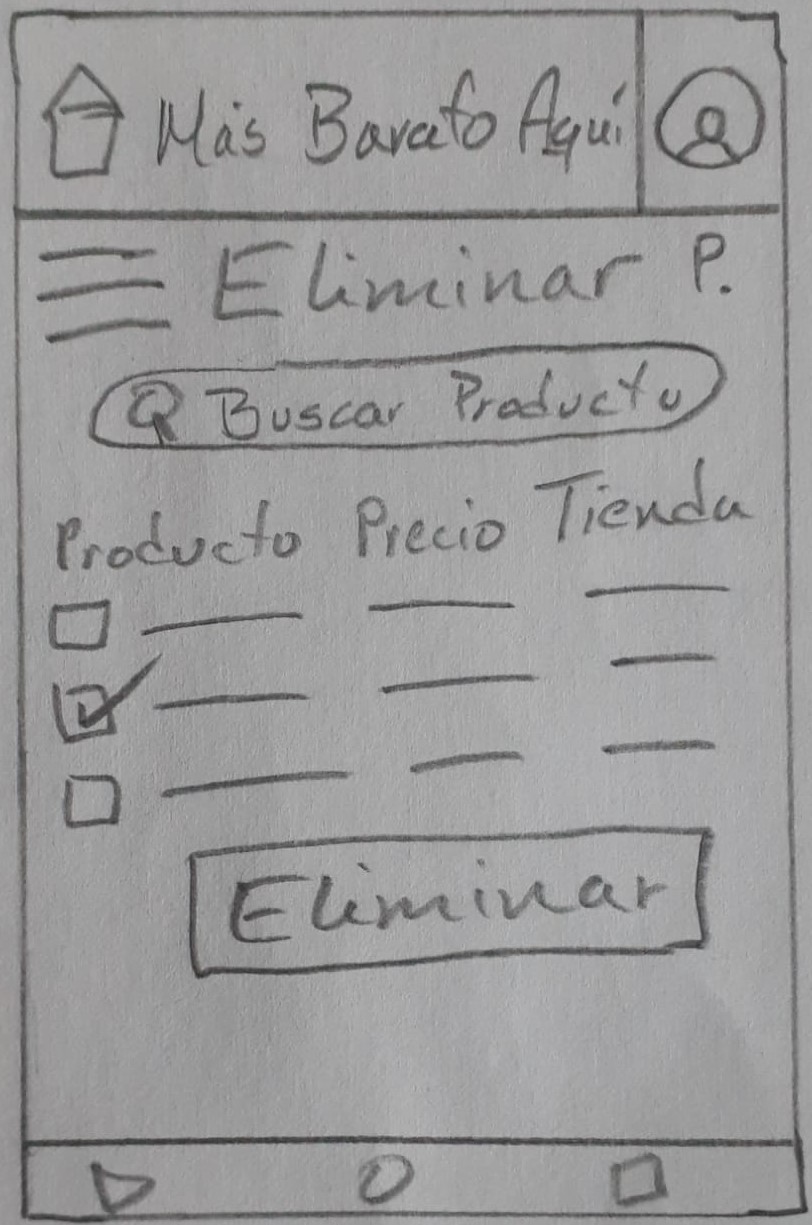 Más Barato Aquí
Eliminar P.
Buscar Producto
Producto Precio Tienda
Eliminar